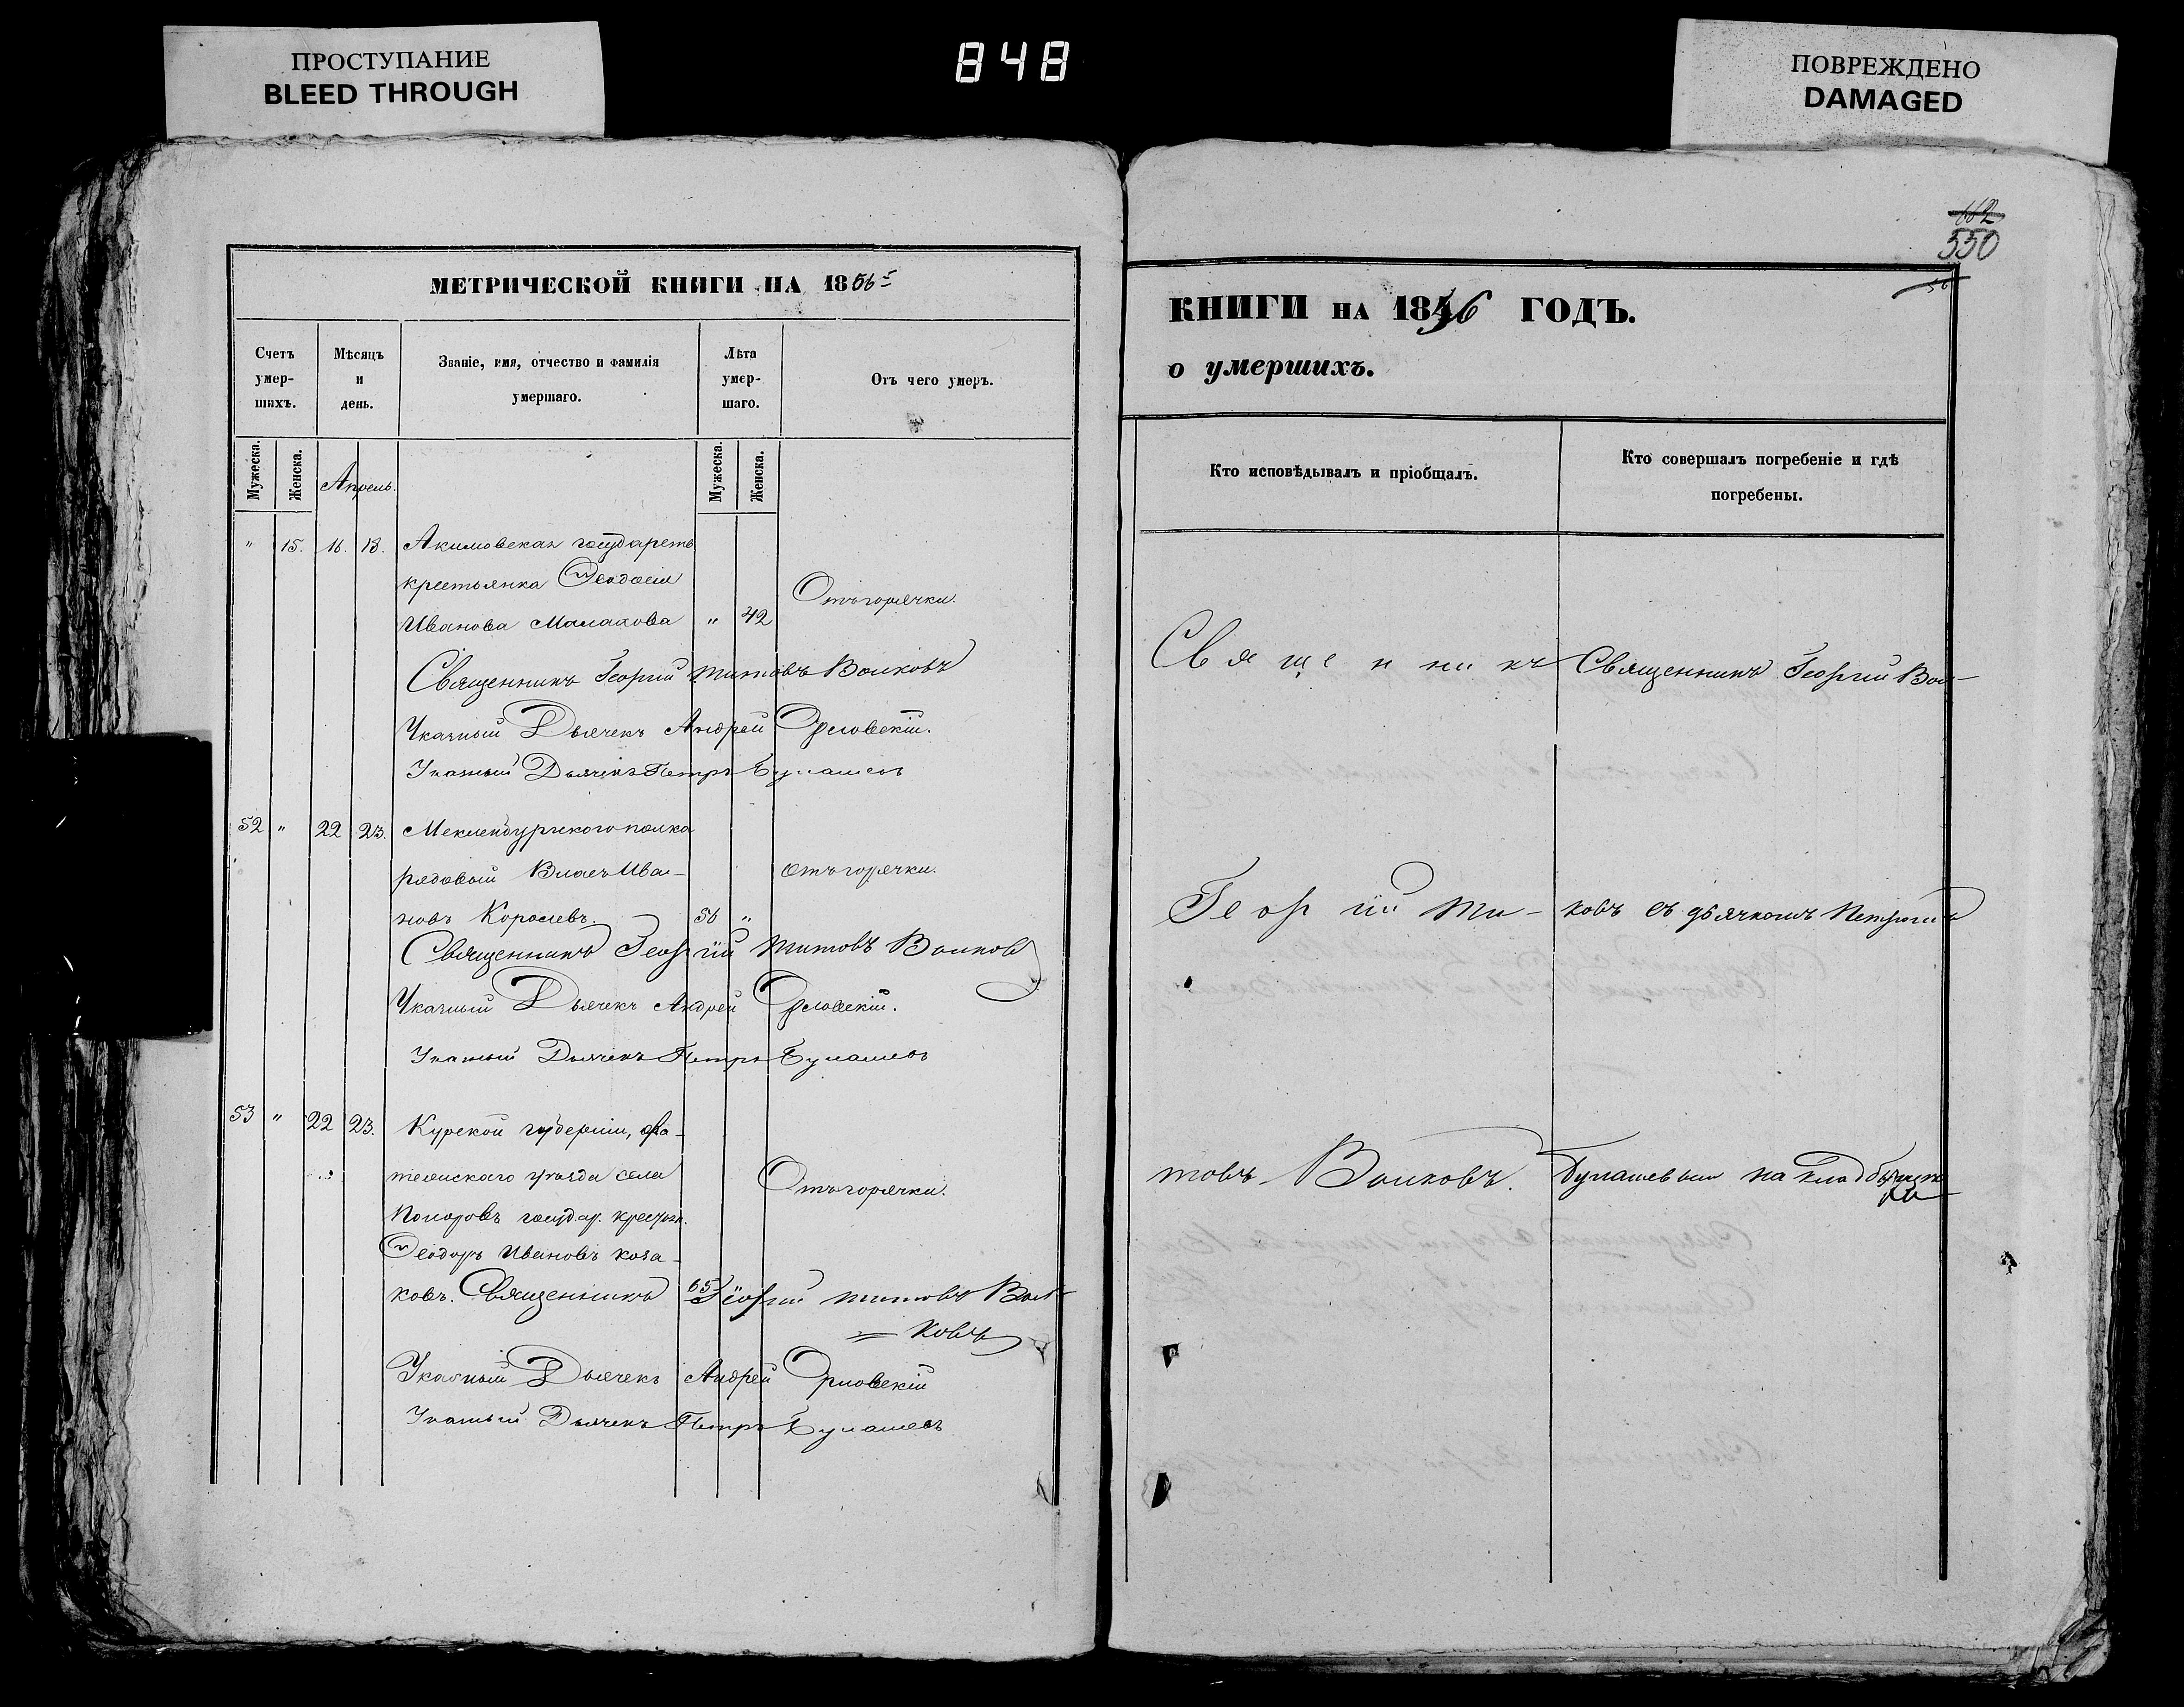 ПРОСТУПАНИЕ
BLEED THROUGH
848
ПОВРЕЖДЕНО
DAMAGED
МЕТРИЧЕСКОЙ КНИГИ НА 1856
Счетъ умер-шихъ.
Мѣсяцъ и день.
Званіе, имя, отчество и фамилія умершаго.
Лѣта умер-шаго.
Отъ чего умеръ.
Мужеска.
Женска.
Апрель.
Мужеска.
Женска.
" 15. 16. 18. Акимовская государств
крестьянка Ѳеодосія
Отъ горячки.
Иванова Малахова " 42
Священникъ Георгий Титовъ Волковъ
Указный Дьячекъ Андрей Орловскій.
Указный Дьячекъ Петръ Булашевъ
52 " 22 23. Мекленбургского полка
рядовый Власъ Ива- отъ горячки.
новъ Королевъ. 36 "
Священникъ Георгій Титовъ Волковъ
Указный Дьячекъ Андрей Орловскій.
Указный Дьячекъ Петръ Булашевъ
53 " 22 23. Курской губерніи, фа-
тежскаго уѣзда села
Отъ горячки.
государ. крестьян.
Ѳеодоръ Ивановъ Коза-
ковъ. Священникъ 65 Георгій Титовъ Вол-
= ковъ
Указный Дьячекъ Андрей Орловскій
Указный Дьячекъ Петръ Булашевъ
662
550
КНИГИ НА 1856 ГОДЪ.
о умершихъ.
Кто исповѣдывалъ и пріобщалъ.
Кто совершалъ погребеніе и гдѣ погребены.
Священникъ Священникъ Георгий Вол-
Георгій Ти- ковъ съ дьячкомъ Петромъ
товъ Волковъ. Булашевым на кладбищѣ